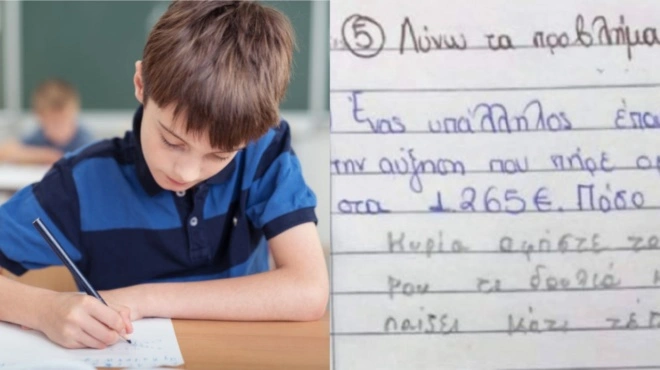 ⑤ Λύνω τα προβλήμα
Ένας υπάλληλος έπαι
την αύξηση που πήρε
στα 1.265€. Πόσο
Κυρία αφήστε το
μου τι δουλιά
παίζει κάτι τέτ